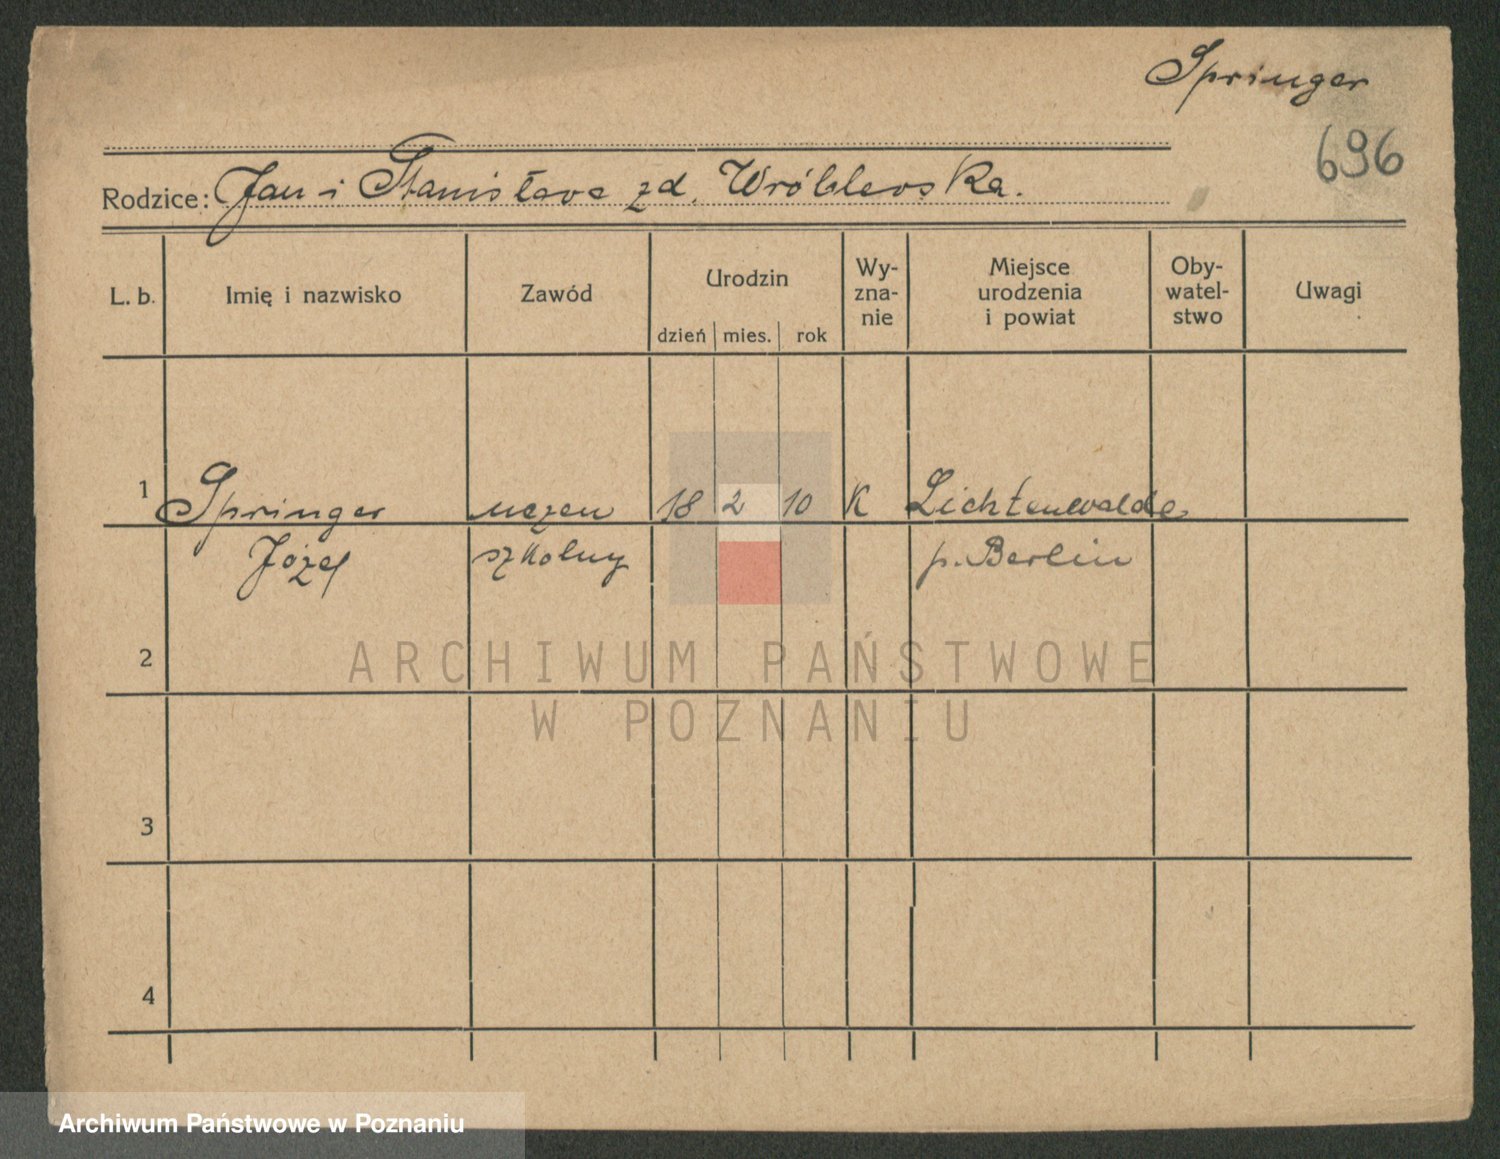 Springer
696
Rodzice: Jan i Stanisława zd. Wróblewska.
L. b. Imię i nazwisko Zawód Urodzin dzień mies. rok Wy-zna-nie Miejsce urodzenia i powiat Oby-watel-stwo Uwagi
1 Springer uczeń 18 2 10 K Lichtenwalde
Józef szkolny p. Berlin
2
3
4
ARCHIWUM PAŃSTWOWE
W POZNANIU
Archiwum Państwowe w Poznaniu